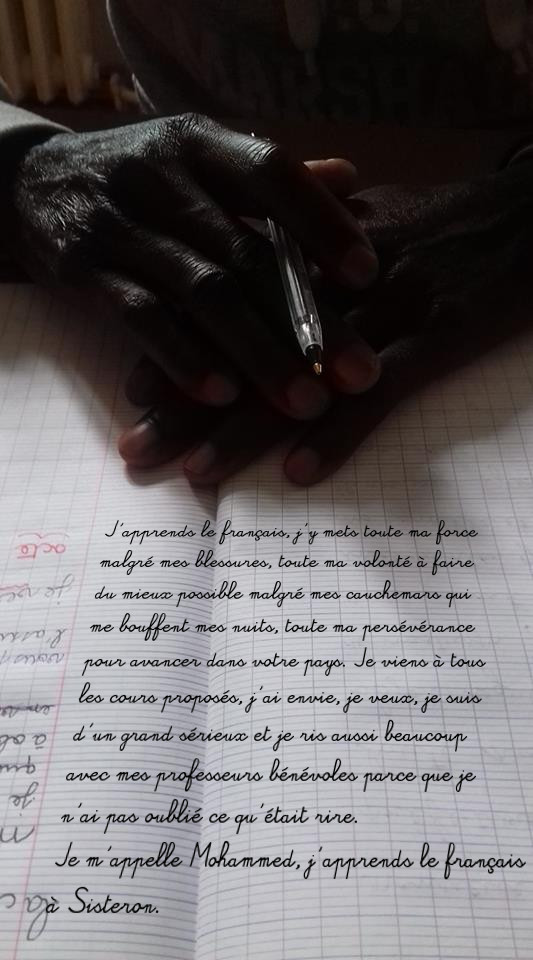 MARSHAL
J'apprends le français, j'y mets toute ma force
malgré mes blessures, toute ma volonté à faire
du mieux possible malgré mes cauchemars qui
me bouffent mes nuits, toute ma persévérance
pour avancer dans votre pays. Je viens à tous
les cours proposés, j'ai envie, je veux, je suis
d'un grand sérieux et je ris aussi beaucoup
avec mes professeurs bénévoles parce que je
n'ai pas oublié ce qu'était rire.
Je m'appelle Mohammed, j'apprends le français
à Sisteron.